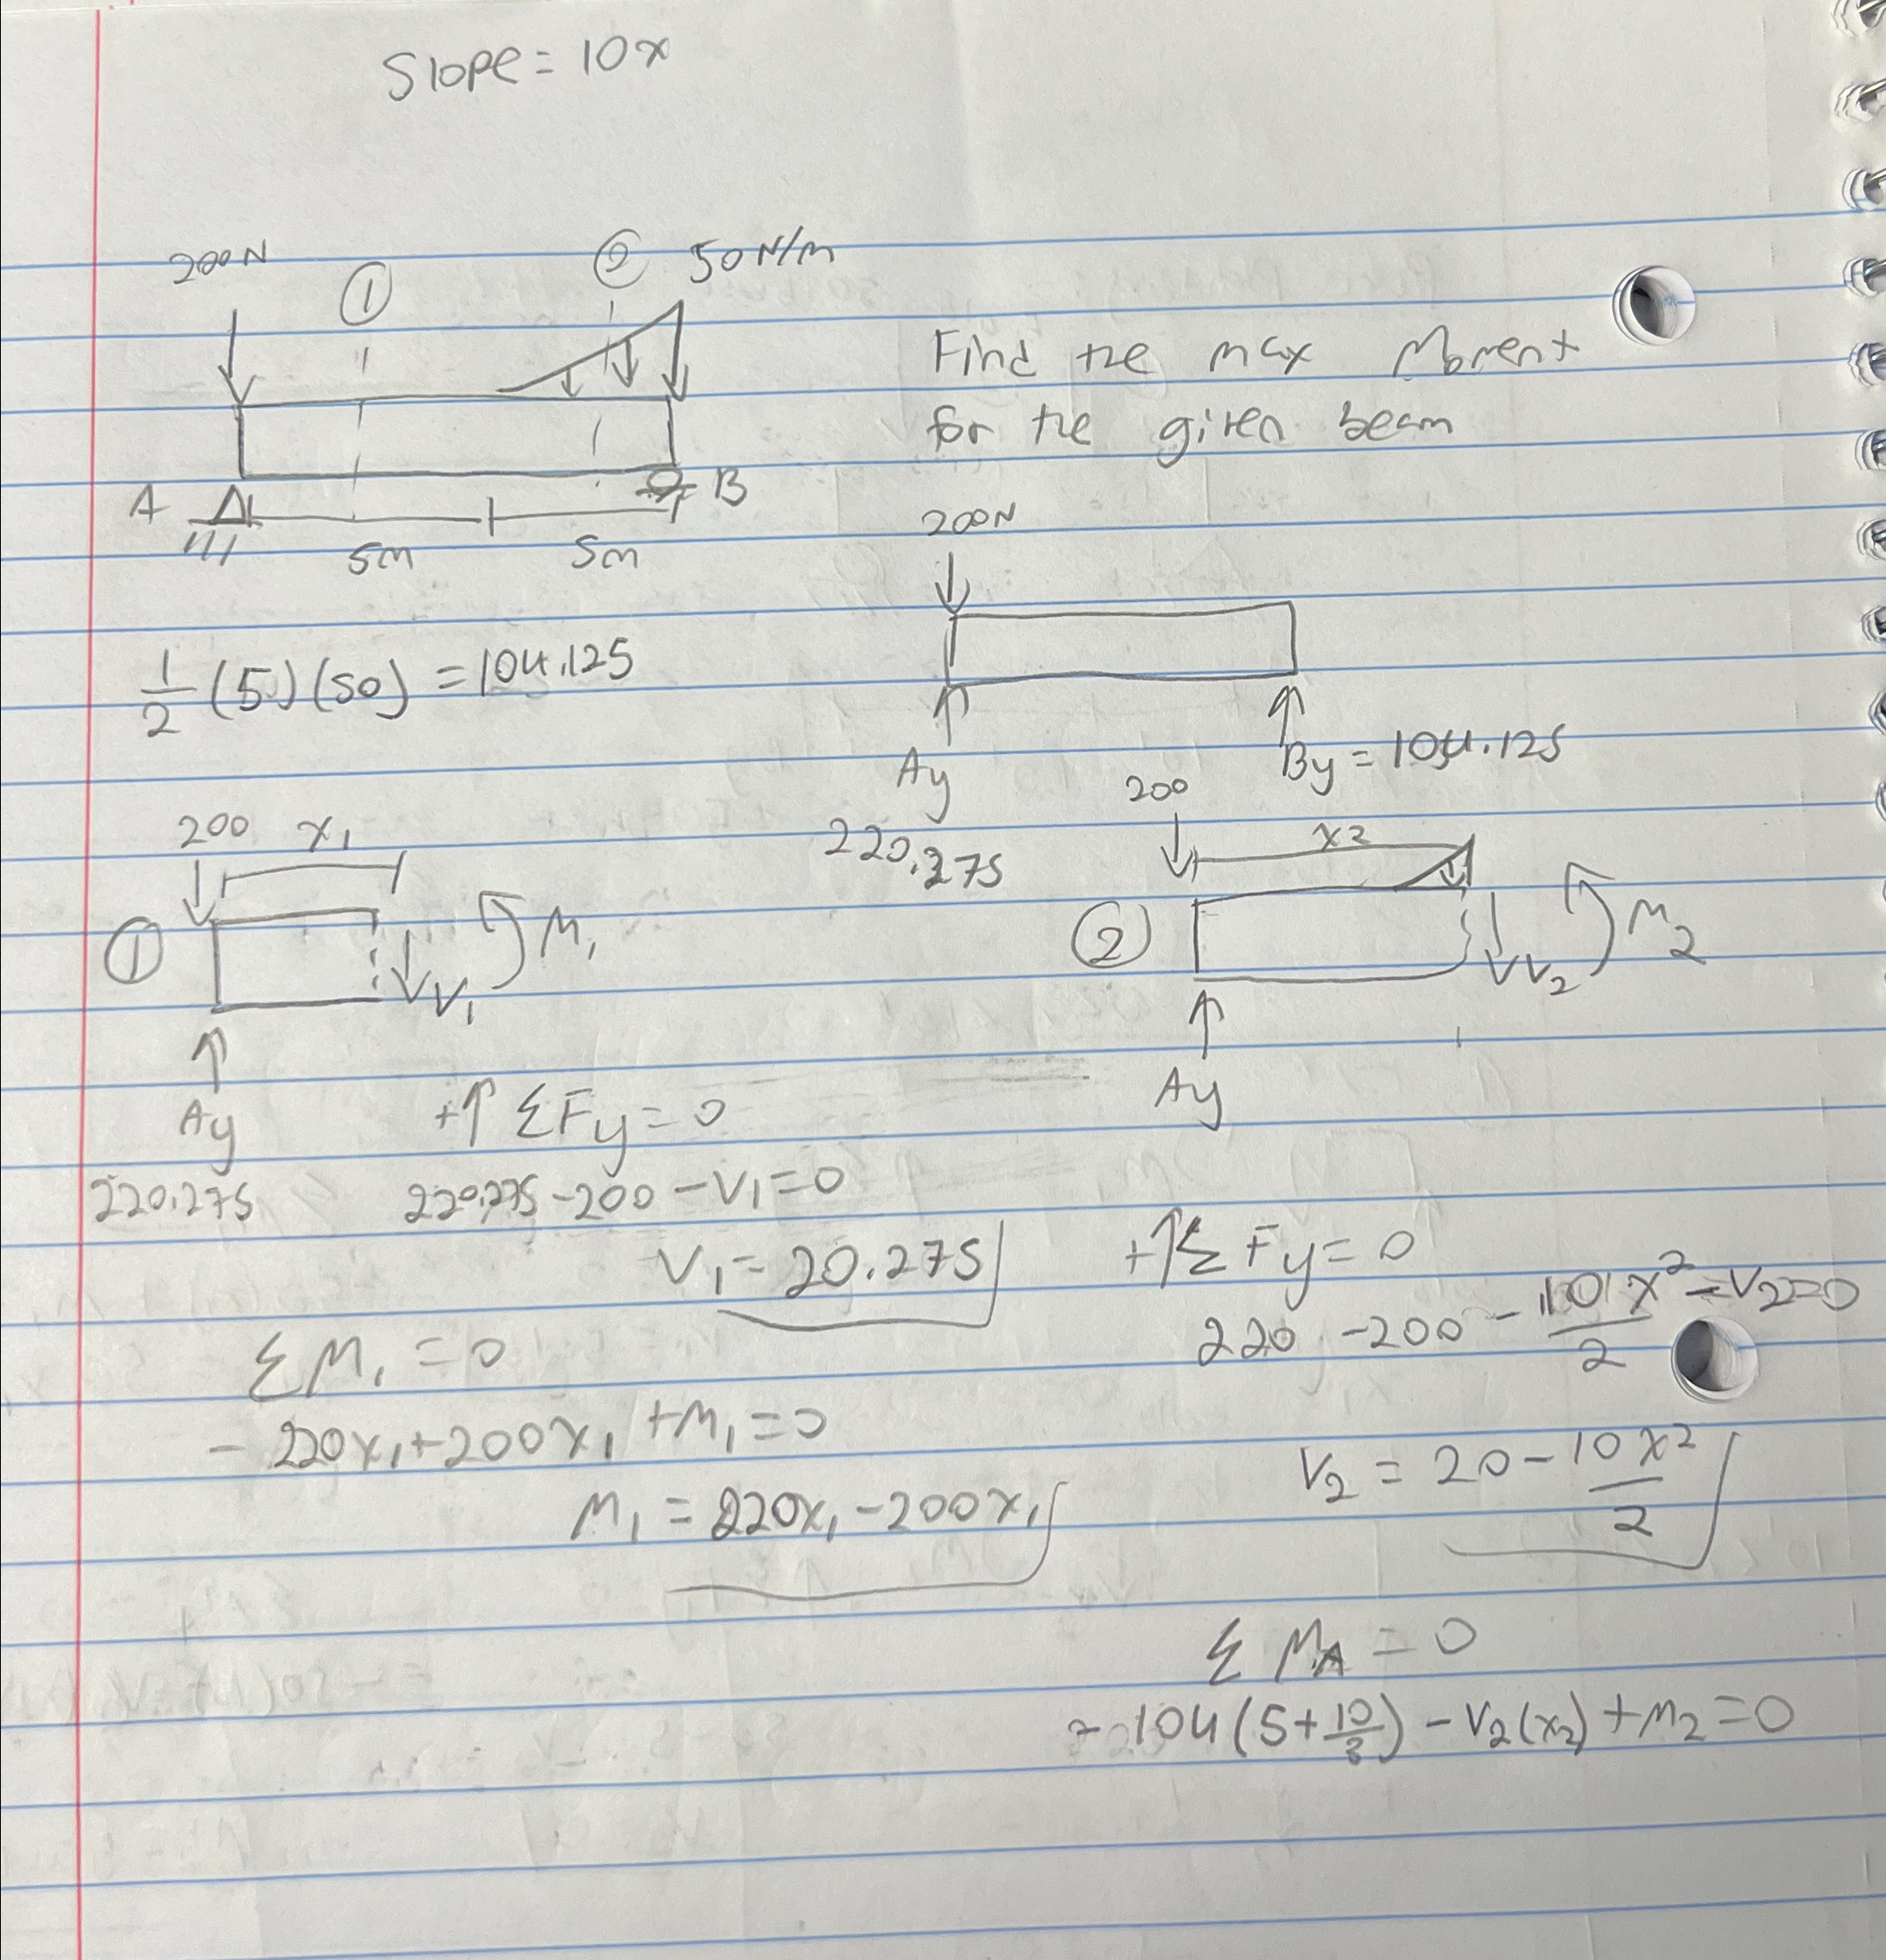 Slope = 10x
200N ① ② 50 N/m
Find the max Moment
for the given beam
A B
5m 5m
200N
1/2 (5)(50) = 104.125
Ay By = 104.125
220.275
200 x₁
① V₁ M₁
Ay
220.275
200 x₂
② V₂ M₂
Ay
+↑ ΣFy = 0
220.275 - 200 - V₁ = 0
V₁ = 20.275
ΣM₁ = 0
- 220x₁ + 200x₁ + M₁ = 0
M₁ = 220x₁ - 200x₁
+↑ Σ Fy = 0
220 - 200 - 10x²/2 - V₂ = 0
V₂ = 20 - 10x²/2
Σ MA = 0
- 104 (5 + 10/3) - V₂(x₂) + M₂ = 0